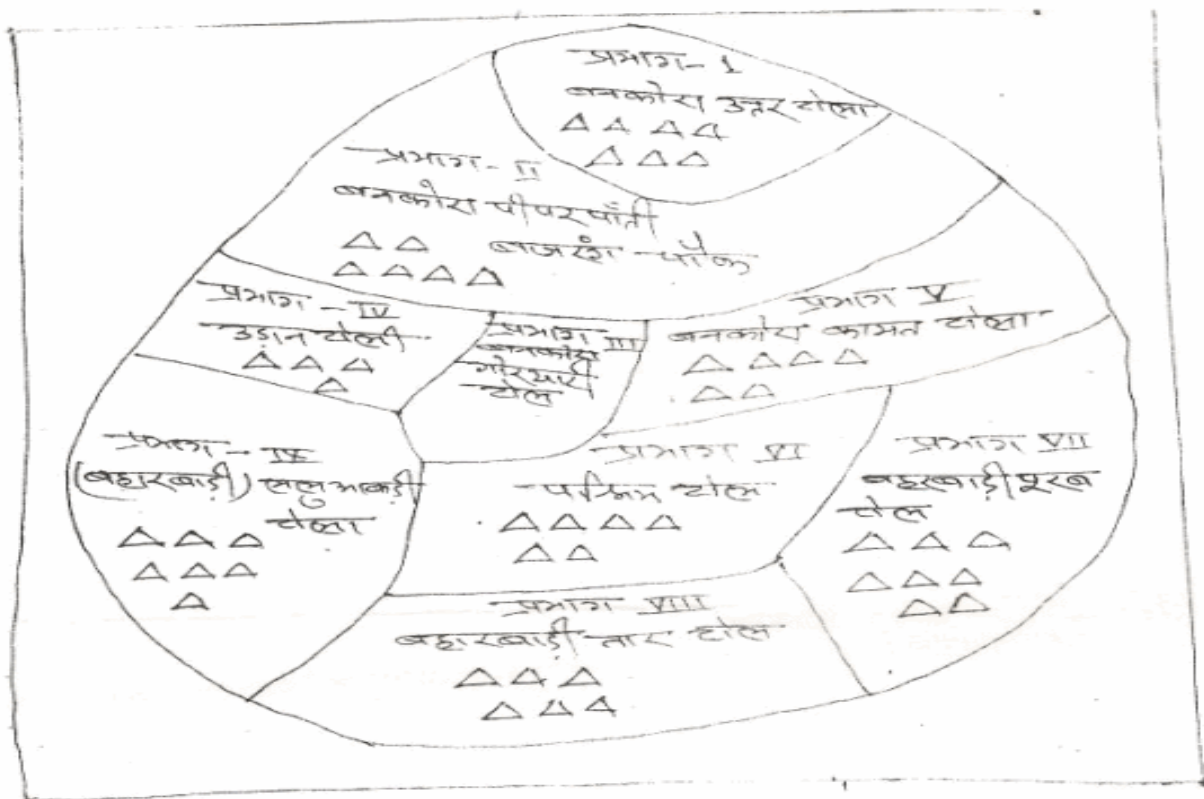 प्रभाग-1
बनकोरा उत्तर टोला
प्रभाग-II
बनकोरा पीपरपाँती
बजरंग चौक
प्रभाग-IV
उड़ान टोली
प्रभाग III
बनकोरा
टोल
प्रभाग V
बनकोरा कामत टोला
प्रभाग-IX
(बहारबाड़ी)
टोला
प्रभाग VI
पश्चिम टोल
प्रभाग VII
बहरबाड़ी पूरब
टोल
प्रभाग VIII
बहारबाड़ी तार टोल